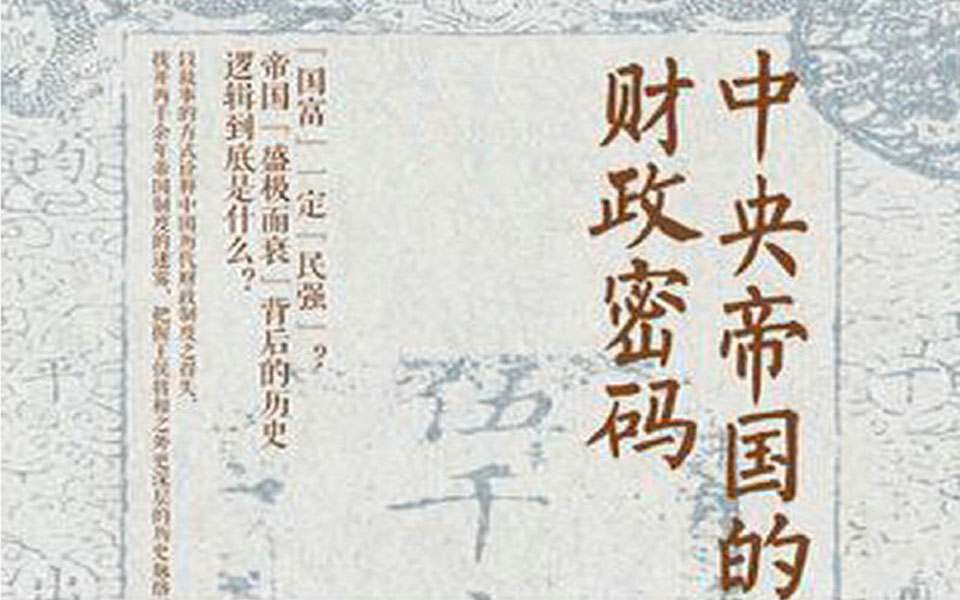 中央帝国的
财政密码
「国富」一定「民强」？
帝国「盛极而衰」背后的历史
逻辑到底是什么？
以故事的方式诠释中国历代财政制度之得失，
拨开两千余年帝国制度的迷雾，把握王侯将相之外更深层的历史脉络
伍
千